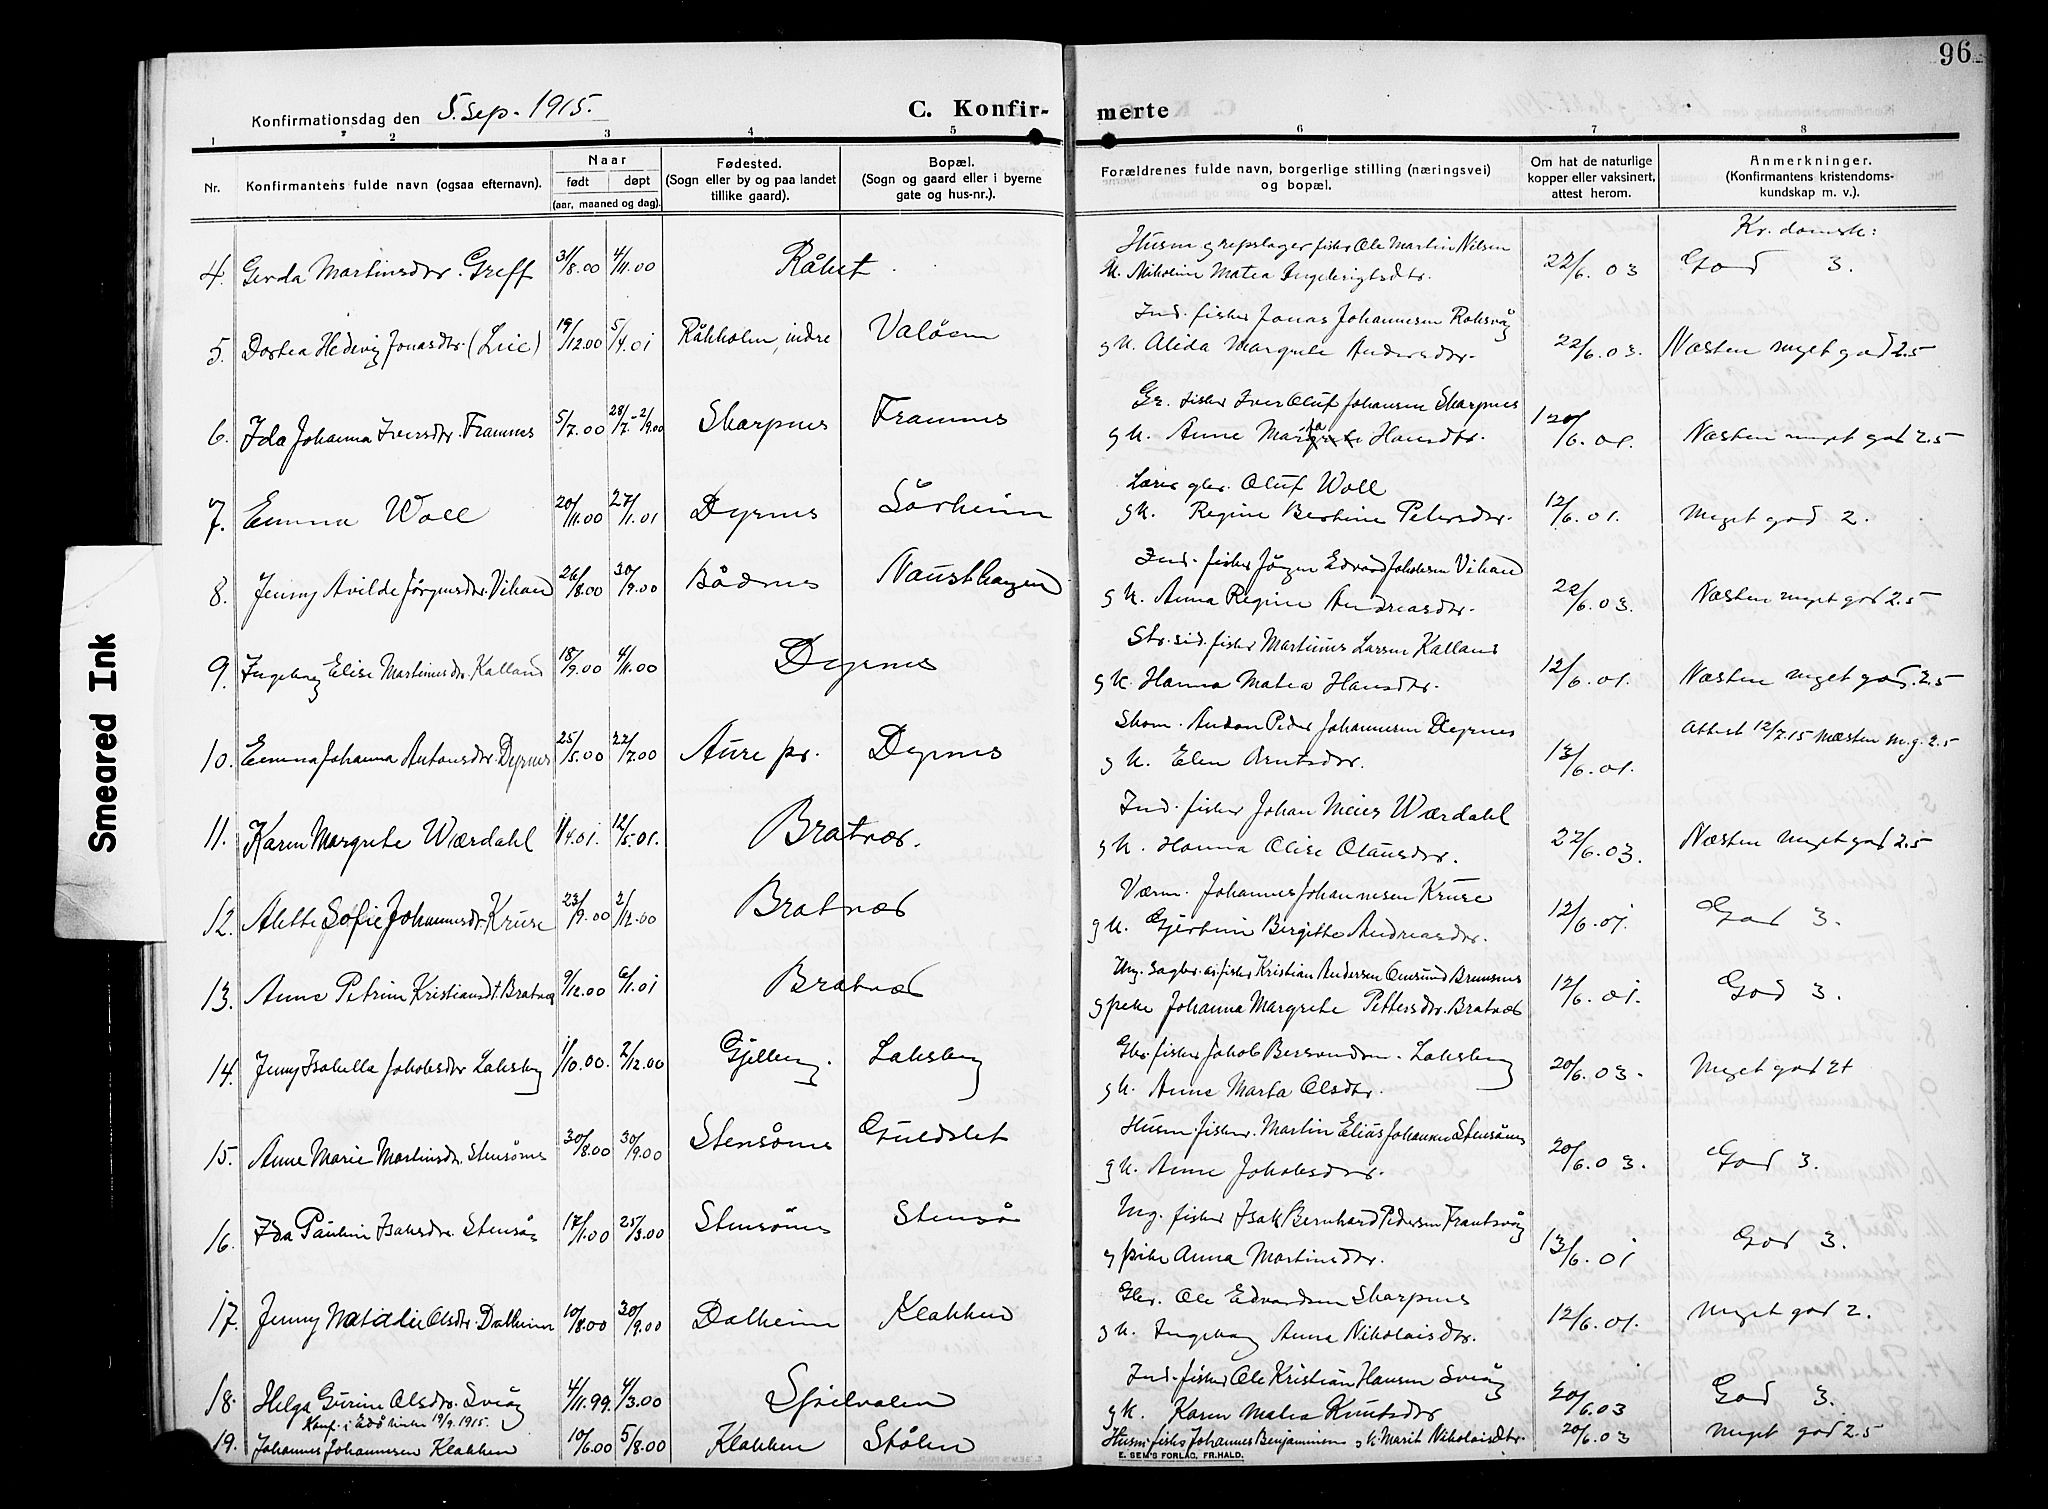 96
Konfirmationsdag den 5. Sep. 1915.
C. Konfirmerte
1 2 3 4 5 6 7 8
Nr. Konfirmantens fulde navn (ogsaa efternavn). Naar født døpt (aar, maaned og dag). Fødested. (Sogn eller by og paa landet tillike gaard). Bopæl. (Sogn og gaard eller i byerne gate og hus-nr.). Forældrenes fulde navn, borgerlige stilling (næringsvei) og bopæl. Om hat de naturlige kopper eller vaksinert, attest herom. Anmerkninger. (Konfirmantens kristendomskundskap m. v.).
Kr. domsk:
4. Gerda Martinsdtr. Greff 31/8.00 4/11.00 Råket Husm. og repslager fisker Ole Martin Nilsen
K. Nikoline Matea Ingebrigtsdtr. 22/6.03 God 3.
5. Dortea Hedevig Jonasdtr. (Lie) 19/12.00 5/4.01 Råkholm, indre Valöen Ind. fisker Jonas Johannesen Roksvåg
g K. Alida Margrete Andersdtr. 22/6.03. Næsten meget god 2.5
6. Ida Johanna Iversdtr. Framnes 5/7.00 28/7-2/9.00 Skarpnes Framnes Gr. fisker Iver Oluf Johansen Skarpnes
g K. Anne Marta Hansdtr. 20/6.01. Næsten meget god 2.5
7. Emma Woll 20/11.00 27/1.01 Dyrnes Sörheim Lærer gbr. Oluf Woll
g K. Regine Bertine Petersdtr. 12/6.01. Meget god 2.
8. Jenny Avilde Jörgensdtr. Vikan 26/8.00 30/9.00 Bådnes Nausthaugen Ind. fisker Jörgen Edvard Jakobsen Vikan
g K. Anna Regine Andreasdtr. 22/6.03. Næsten meget god 2.5
9. Ingeborg Elise Martinusdtr. Kalland 18/9.00 4/11.00 Dyrnes Str. sid. fisker Martinus Larsen Kalland
g K. Hanna Matea Hansdtr. 12/6.01. Næsten meget god. 2.5
10. Emma Johanna Antonsdtr. Dyrnes 25/5.00 22/7.00 Aure pr. Dyrnes Skom. Anton Peder Johannesen Dyrnes
g K. Elen Arntsdtr. 13/6.01. Attest 12/7.15 Næsten m.g. 2.5
11. Karen Margrete Wærdahl 1/4.01. 12/5.01. Bratvær. Ind. fisker Johan Meier Wærdahl
g K. Hanna Olise Olausdtr. 22/6.03. Næsten meget god 2.5
12. Alette Sofie Johannesdtr. Kruse 23/9.00 2/12.00 Bratvær Værm. Johannes Johannesen Kruse
g K. Gjertine Birgitte Andreasdtr. 12/6.01 God 3.
13. Anne Petrine Kristiansdt. Bratvær 9/12.00 6/1.01 Bratvær Ung. sagbr. og fisker Kristian Andersen Omsund Bremsnes
g pike Johanna Margrete Pettersdtr. Bratvær 12/6.01. God 3.
14. Jenny Isabella Jakobsdtr Laksberg 1/10.00. 2/12.00 Gjelberg. Laksberg Gbr. fisker Jakob Bersvendsen Laksberg
g K. Anne Marta Olsdtr. 20/6.03. Meget god 2+
15. Anne Marie Martinsdtr. Stensönes 30/8.00 30/9.00 Stensönes Guldslet Husm. fisker. Martin Elias Johansen Stensönes
g K. Anne Jakobsdtr. 20/6.03. God 3.
16. Ida Pauline Isaksdtr. Stensö 17/1.00 25/3.00 Stensönes Stensö Ung. fisker Isak Bernhard Pedersen Frantsvåg
g pike Anna Martinsdtr. 13/6.01 God 3.
17. Jenny Natalie Olsdtr. Dalheim 10/8.00 30/9.00 Dalheim Klakken Gbr. Ole Edvardsen Skarpnes
g K. Ingeborg Anna Nikolaisdtr. 12/6.01. Meget god 2.
18. Helga Gurine Olsdtr. Sviåg 4/11.99. 4/3.00 Sjölvalen Ind. fisker Ole Kristian Hansen Sviåg
g K. Karen Matea Knutsdtr 20/6.03 God 3.
Konf. i Edö kirke 19/9.1915.
19. Johannes Johannesen Klakken 10/6.00 5/8.00 Klakken Stölen Husm. fisker Johannes Benjaminsen g K Marit Nikolaisdtr. 20/6.03 Meget god 2.5
E. SEM'S FORLAG, FR.HALD.
Smeared Ink